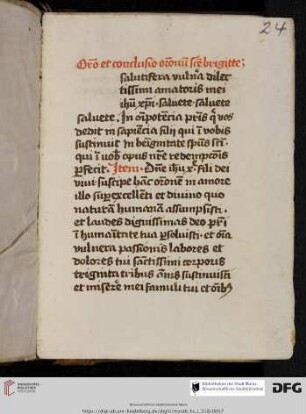 24
Oro et conclusio oronum sce brigitte;
salutifera vulnera dilec
tissimi amatoris mei
ihu xpi. saluete. saluete
saluete. In oipotencia pris q vos
dedit in sapiencia filij qui in vobis
sustinuit In benignitate spus sci.
qui in vob opus nre redempcois
perfecit. Item. Dne ihu xe fili dei
viui suscipe hac oronem in amore
illo superexcellenti et diuino quo
naturam humanam assumpsisti.
et laudes dignissimas deo pri
in humanitate tua persoluisti. et oia
vulnera passionis labores et
dolores tui sanctissimi corporis
triginta tribus annis sustinuisti
et misere mei famuli tui et oib
UNIVERSITÄTS-
BIBLIOTHEK
HEIDELBERG
Bibliotheken der Stadt Mainz -
Wissenschaftliche Stadtbibliothek
Gefördert durch die
DFG
Wissenschaftliche Stadtbibliothek Mainz